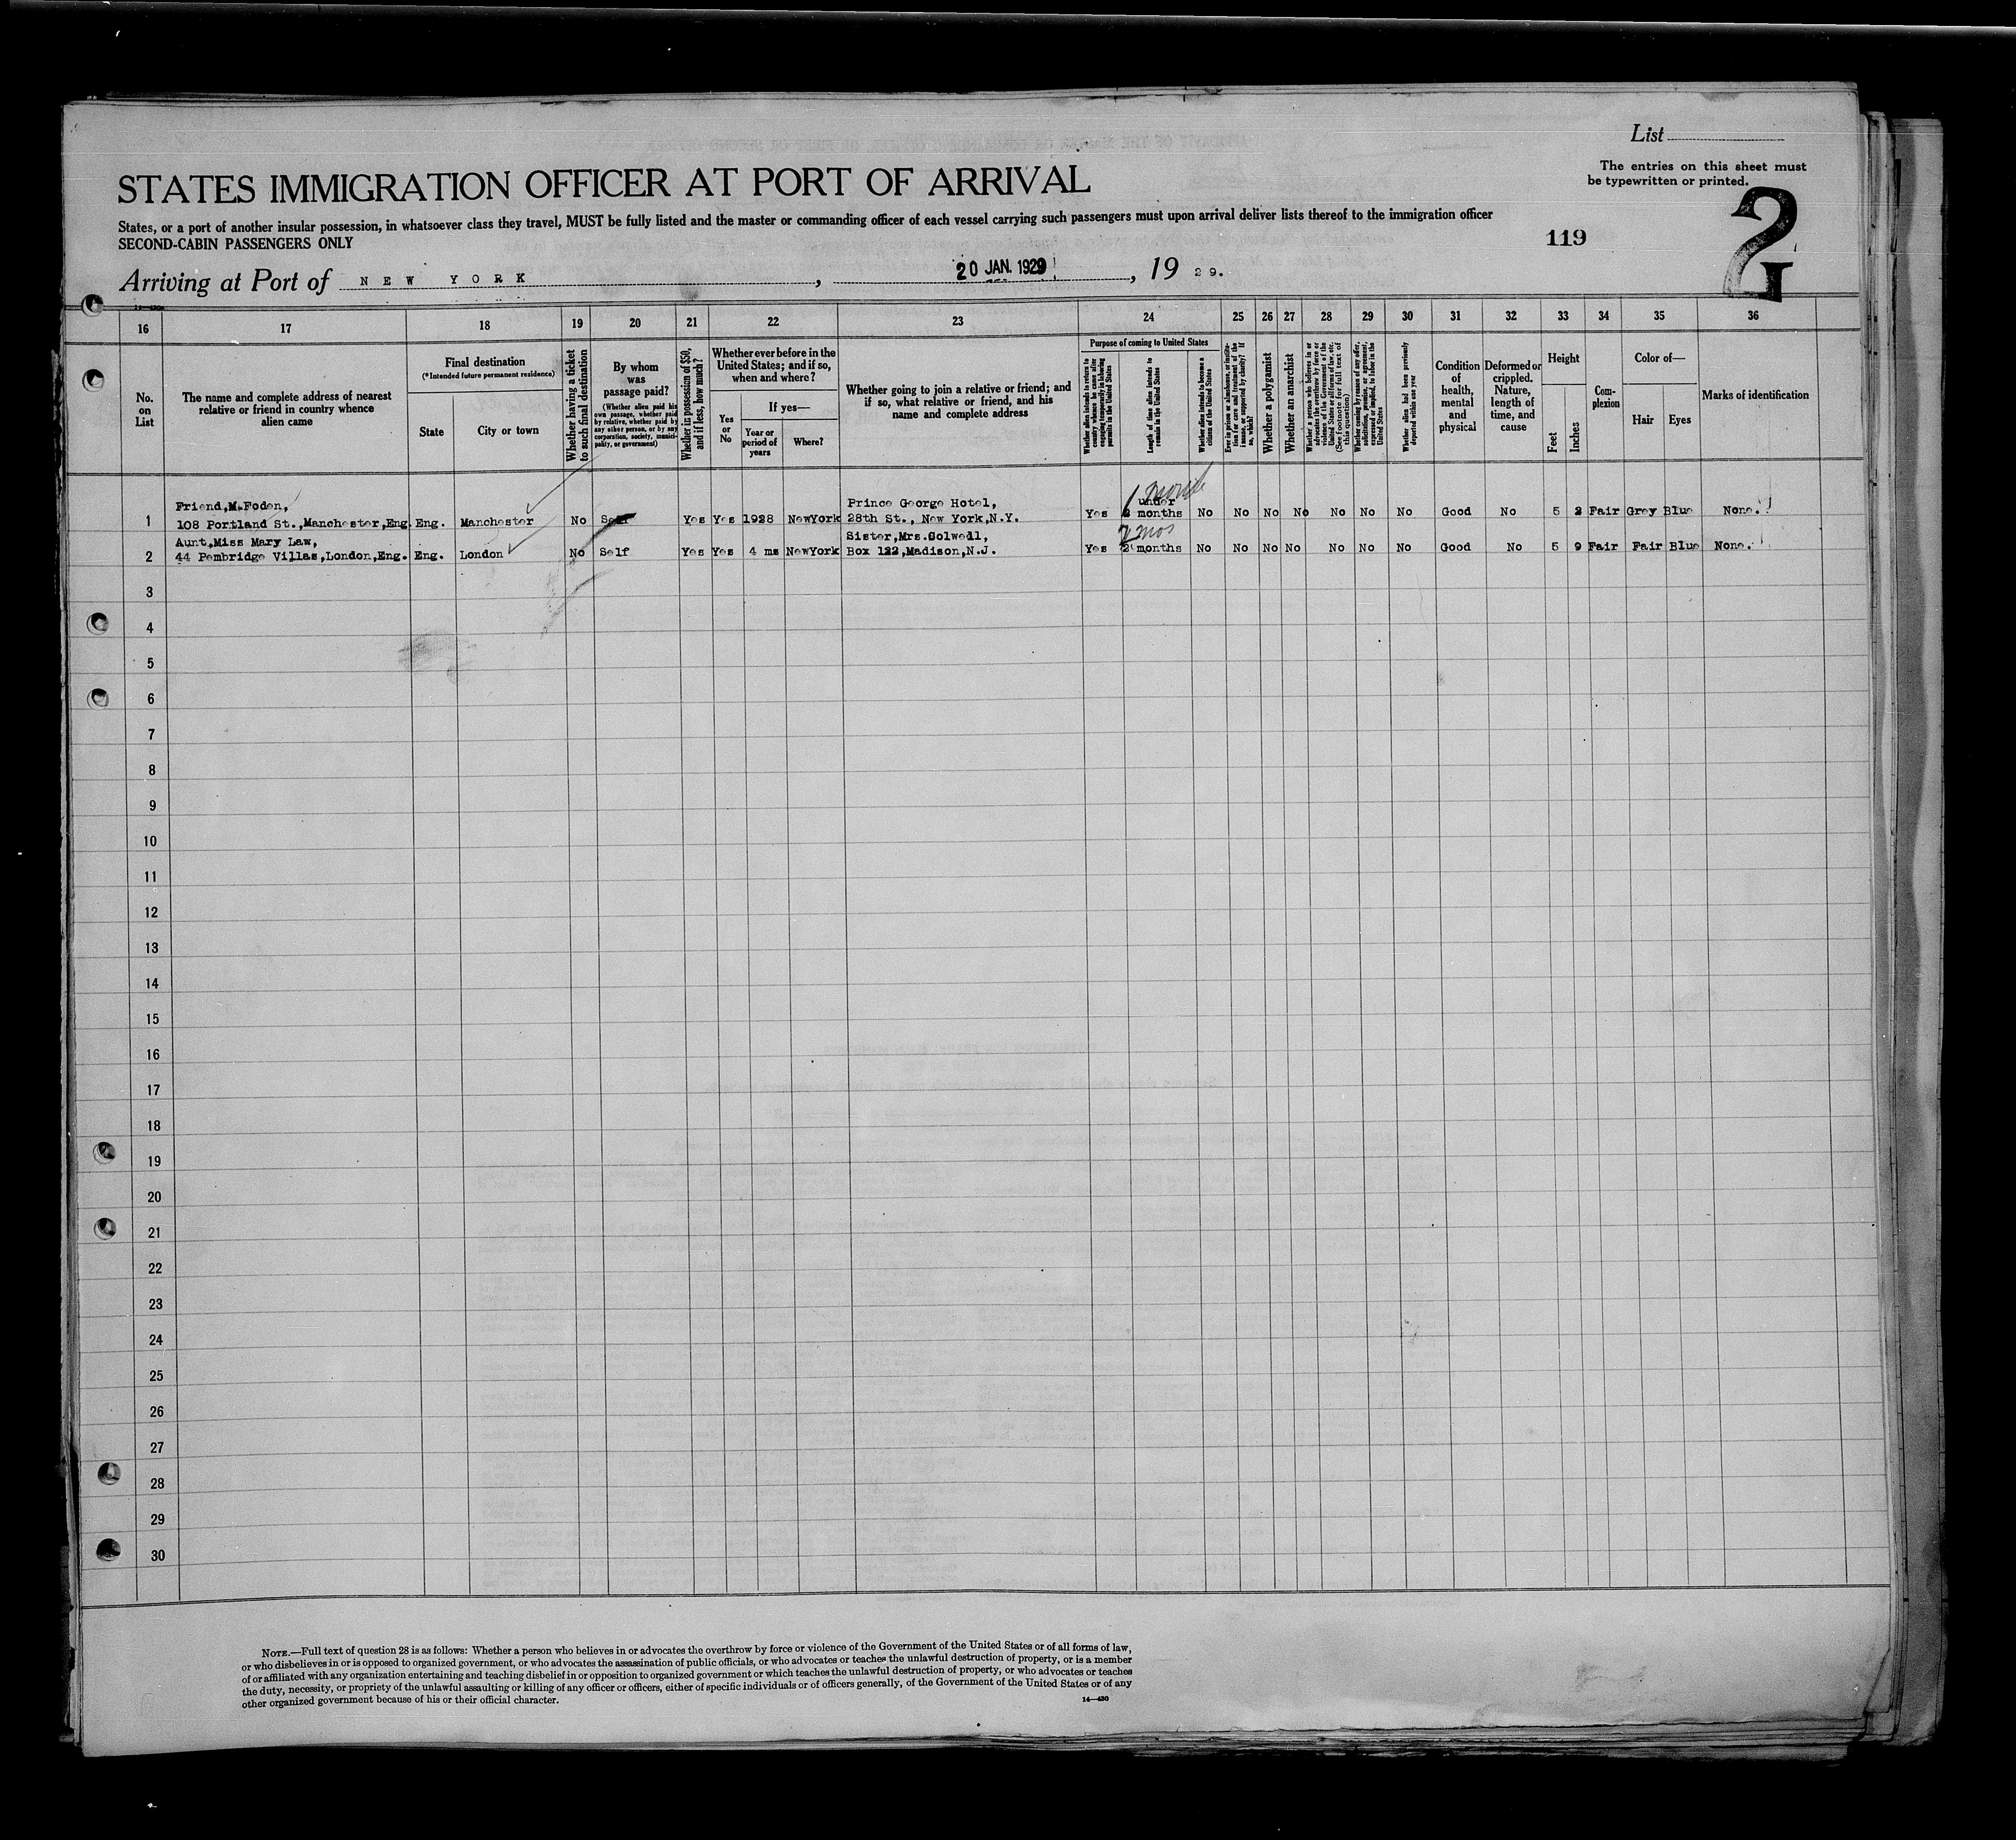 List
The entries on this sheet must
be typewritten or printed.
STATES IMMIGRATION OFFICER AT PORT OF ARRIVAL
States, or a port of another insular possession, in whatsoever class they travel, MUST be fully listed and the master or commanding officer of each vessel carrying such passengers must upon arrival deliver lists thereof to the immigration officer
SECOND-CABIN PASSENGERS ONLY
119
2
Arriving at Port of NEW YORK, 20 JAN. 1929, 19 29.
16 17 18 19 20 21 22 23 24 25 26 27 28 29 30 31 32 33 34 35 36
No. on List
The name and complete address of nearest relative or friend in country whence alien came
Final destination
(*Intended future permanent residence)
State
City or town
Whether having a ticket to such final destination
By whom was passage paid?
(Whether alien paid his own passage, whether paid by relative, whether paid by any other person, or by any corporation, society, municipality, or government)
Whether in possession of $50, and if less, how much?
Whether ever before in the United States; and if so, when and where?
Yes or No
If yes—
Year or period of years
Where?
Whether going to join a relative or friend; and if so, what relative or friend, and his name and complete address
Purpose of coming to United States
Whether alien intends to return to country whence he came after engaging temporarily in laboring pursuits in the United States
Length of time alien intends to remain in the United States
Whether alien intends to become a citizen of the United States
Ever in prison or almshouse, or institution for care and treatment of the insane, or supported by charity? If so, which?
Whether a polygamist
Whether an anarchist
Whether a person who believes in or advocates the overthrow by force or violence of the Government of the United States or all forms of law, etc. (See footnote for full text of this question)
Whether coming by reason of any offer, solicitation, promise, or agreement, expressed or implied, to labor in the United States
Whether alien had been previously deported within one year
Condition of health, mental and physical
Deformed or crippled. Nature, length of time, and cause
Height
Feet
Inches
Complexion
Color of—
Hair
Eyes
Marks of identification
1 Friend,M.Foden,
108 Portland St.,Manchester,Eng. Eng. Manchester No Self Yes Yes 1928 NewYork Prince George Hotel,
28th St., New York,N.Y. Yes under
2 months 1 month No No No No No No No Good No 5 2 Fair Grey Blue None.
2 Aunt,Miss Mary Law,
44 Pembridge Villas,London,Eng. Eng. London No Self Yes Yes 4 ms NewYork Sister,Mrs.Colwell,
Box 122,Madison,N.J. Yes 2 months 2 mos No No No No No No No Good No 5 9 Fair Fair Blue None.
3
4
5
6
7
8
9
10
11
12
13
14
15
16
17
18
19
20
21
22
23
24
25
26
27
28
29
30
NOTE.—Full text of question 28 is as follows: Whether a person who believes in or advocates the overthrow by force or violence of the Government of the United States or of all forms of law,
or who disbelieves in or is opposed to organized government, or who advocates the assassination of public officials, or who advocates or teaches the unlawful destruction of property, or is a member
of or affiliated with any organization entertaining and teaching disbelief in or opposition to organized government or which teaches the unlawful destruction of property, or who advocates or teaches
the duty, necessity, or propriety of the unlawful assaulting or killing of any officer or officers, either of specific individuals or of officers generally, of the Government of the United States or of any
other organized government because of his or their official character.
14—430